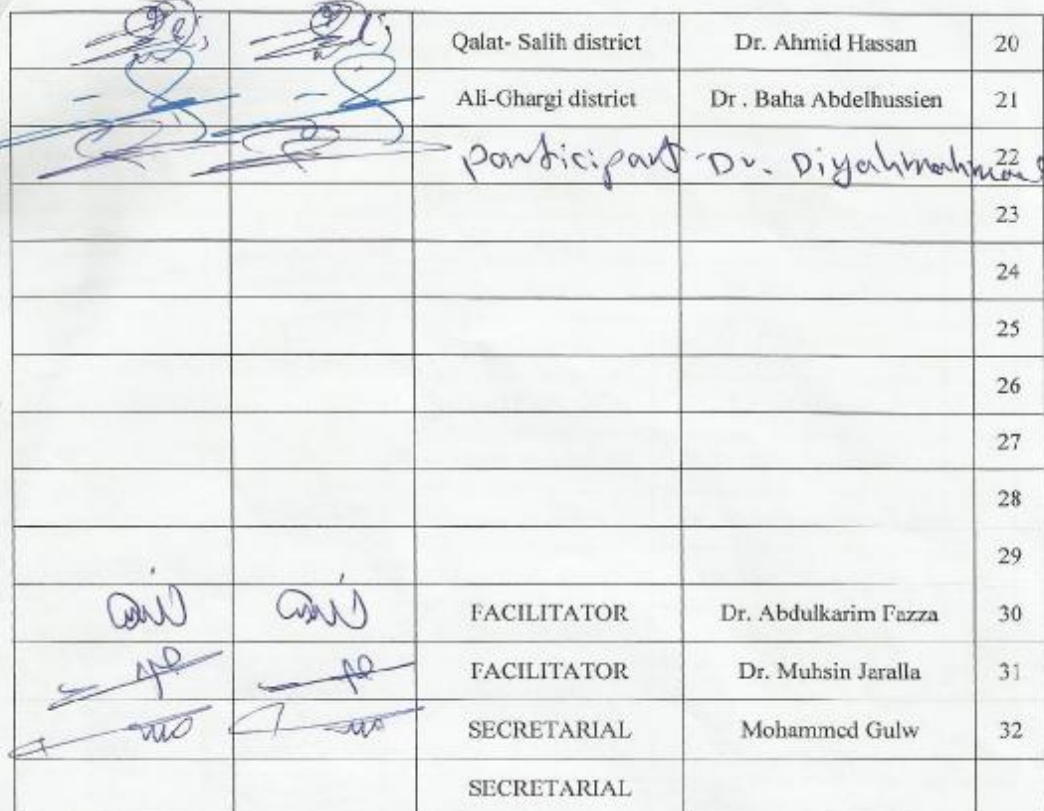 Qalat- Salih district Dr. Ahmid Hassan 20
Ali-Ghargi district Dr . Baha Abdelhussien 21
Participant Dr. 22
23
24
25
26
27
28
29
FACILITATOR Dr. Abdulkarim Fazza 30
FACILITATOR Dr. Muhsin Jaralla 31
SECRETARIAL Mohammed Gulw 32
SECRETARIAL